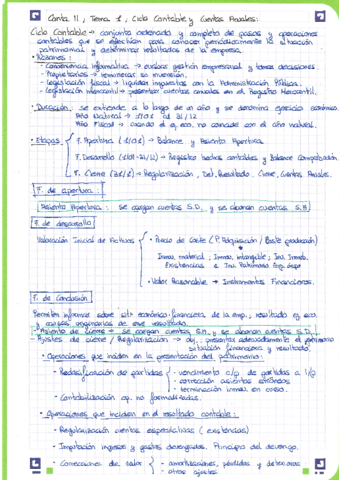 Conta II / Tema 1, Ciclo Contable y Cuentas Anuales:
Ciclo Contable → conjunto ordenado y completo de pasos y operaciones
contables que se efectúan para conocer periódicamente la situación
patrimonial y determinar resultados de la empresa.
• Razones:
- Conveniencia informativa → evaluar gestión empresarial y tomar decisiones.
- Propietarios → remunerar su inversión.
- Legislación fiscal → liquidar impuestos con la Administración Pública.
- Legislación mercantil → presentar cuentas anuales en el Registro Mercantil.
• Duración: se extiende a lo largo de un año y se denomina ejercicio económico.
Año Natural → 1/01 al 31/12
Año Fiscal → cuando el ej. eco. no coincide con el año natural.
• Etapas
F. Apertura (1/01) → Balance y Asiento Apertura
F. Desarrollo (1/01-31/12) → Registro hechos contables y Balance Comprobación.
F. Cierre (31/12) → Regularización, Det. Resultado, Cierre, Cuentas Anuales.
F. de apertura:
Asiento Apertura: se cargan cuentas S.D. y se abonan cuentas S.H
F. de desarrollo
Valoración Inicial de Activos
• Precio de Coste (P. Adquisición / Coste producción)
Inmov. material, Inmov. intangible, Inv. Inmob.
Existencias e
• Valor Razonable → Instrumentos Financieros.
F. de Conclusión
Permiten informar sobre sitª económico-financiera de la emp., resultado ej. eco.
y causas originarias de ese resultado.
• Asiento de Cierre → se cargan cuentas S.H. y se abonan cuentas S.D.
- Ajustes de cierre / Regularización → obj.: presentar adecuadamente el patrimonio
situación financiera y resultado.
• Operaciones que inciden en la presentación del patrimonio:
- Reclasificación de partidas
- vencimiento c/p de partidas a l/p
- corrección asientos erróneos
- terminación inmov. en curso.
- Contabilización op. no formalizadas.
• Operaciones que inciden en el resultado contable:
- Regularización cuentas especulativas (existencias)
- Imputación ingresos y gastos devengados. Principio del devengo.
- Correcciones de valor
- amortizaciones, pérdidas y deterioros
- otros ajustes